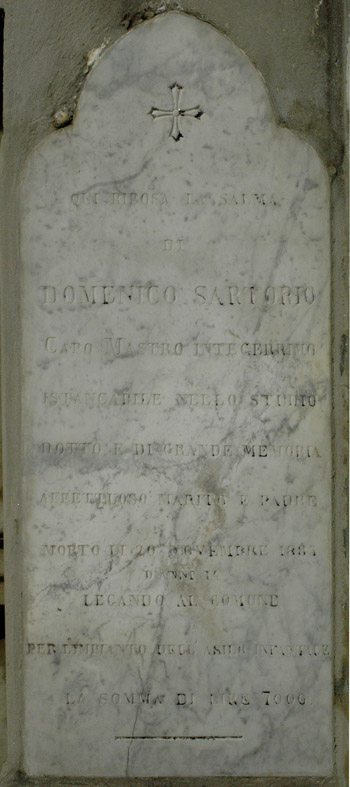 QUI RIPOSA LA SALMA
DI
DOMENICO SARTORIO
CAPO MASTRO INTEGERRIMO
INFANCABILE NELLO STUDIO
DOTTO E DI GRANDE MEMORIA
AFFETTUOSO MARITO E PADRE
MORTO LI 20 NOVEMBRE
LEGANDO AL COMUNE
PER L'IMPIANTO DELL'ASILO
LA SOMMA DI LIRE 7000